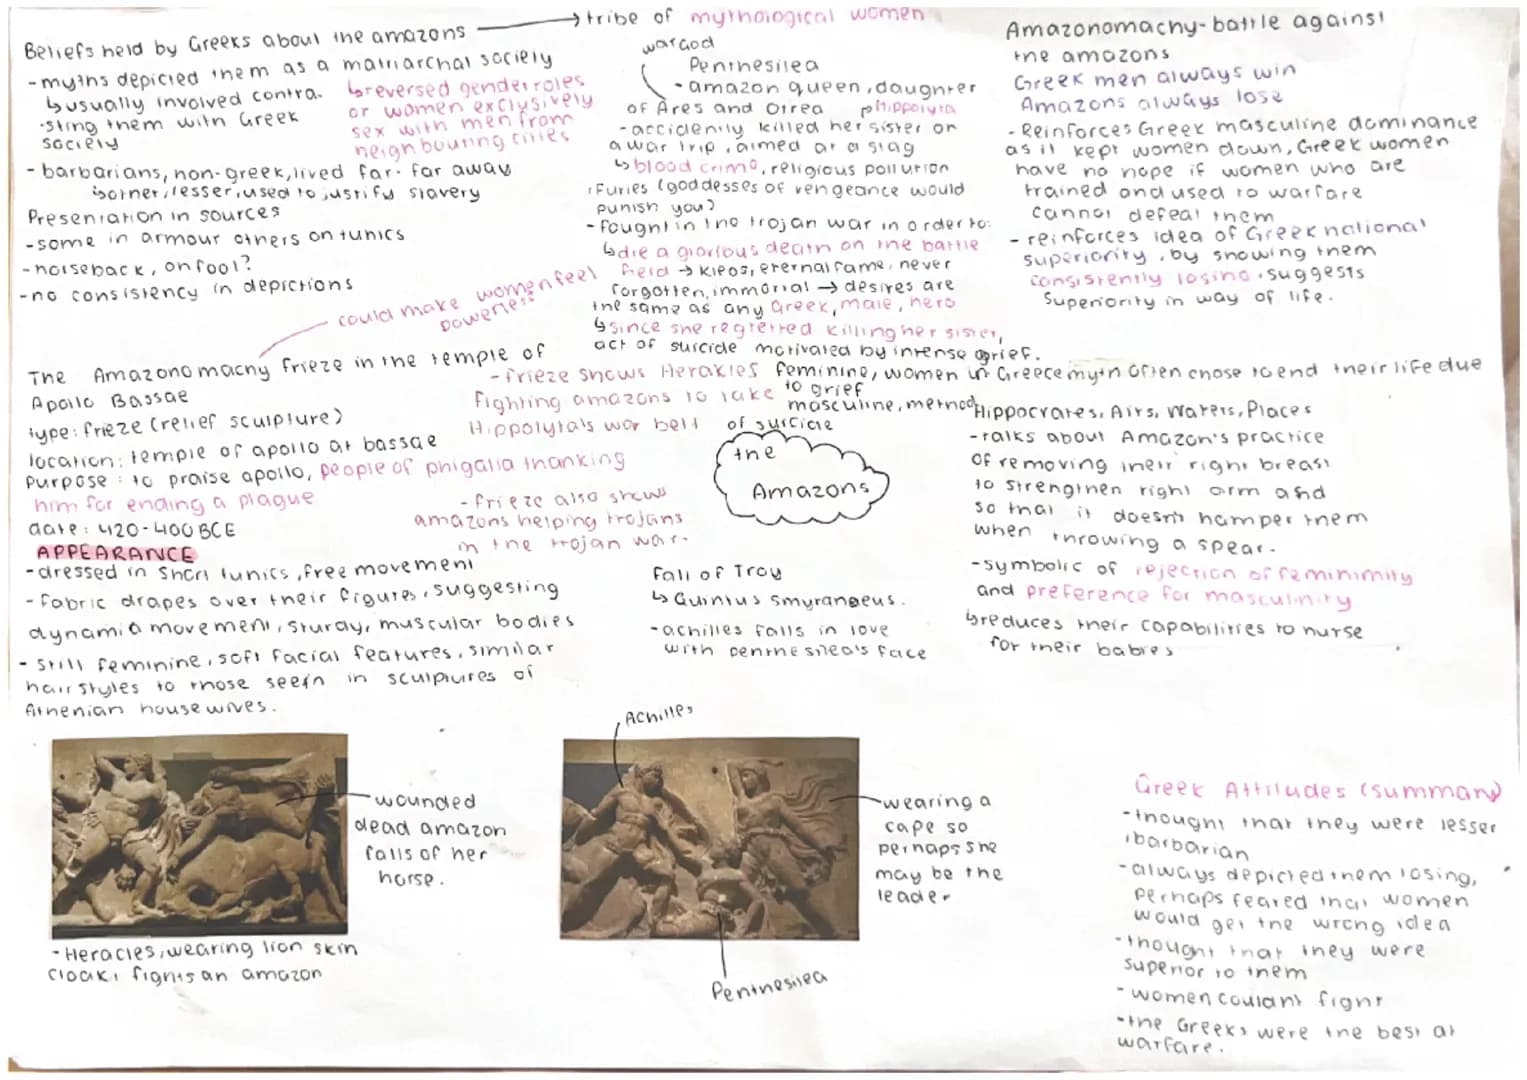 Beliefs held by Greeks about the amazons → tribe of mythological women
-myths depicted them as a matriarchal society
↳usually involved contra.
·sting them with Greek
society
↳reversed gender roles
or women exclusively
sex with men from
neighbouring cities
- barbarians, non-greek, lived far-far away
↳other, lesser, used to justify slavery
Presentation in sources
-some in armour others on tunics
-horseback, on foot?
-no consistency in depictions
war God
Penthesilea
-amazon queen, daughter
of Ares and Otrea
Hippolyta
-accidently killed her sister on
a war trip, aimed at a stag
↳blood crime, religious pollution
Furies (goddesses of vengeance would
punish you?
-fought in the trojan war in order to:
↳die a glorious death on the battle
field → kleos, eternal fame, never
forgotten, immortal → desires are
the same as any Greek, male, hero
↳since she regretted killing her sister,
act of suicide motivated by intense grief.
feminine, women in Greece myth often chose to end their life due
to grief
masculine, method
of suicide
Amazonomachy-battle against
the amazons
Greek men always win
Amazons always lose
-Reinforces Greek masculine dominance
as it kept women down, Greek women
have no hope if women who are
trained and used to warfare
cannot defeat them
- reinforces idea of Greek national
superiority, by showing them
consistently losing, suggests
superiority in way of life.
could make women feel
powerless
The Amazonomachy frieze in the temple of
Apollo Bassae
type: frieze (relief sculpture)
location: temple of apollo at bassae
purpose: to praise apollo, people of phigalia thanking
him for ending a plague
date: 420-400 BCE
-frieze shows Herakles
fighting amazons to take
Hippolyta's war belt
-frieze also shows
amazons helping trojans
in the trojan war.
the
Amazons
APPEARANCE
-dressed in short tunics, free movement
-fabric drapes over their figures, suggesting
dynamic movement, sturdy, muscular bodies
- still feminine, soft facial features, similar
hairstyles to those seen in sculptures of
Athenian housewives.
Fall of Troy
↳Quintus Smyranaeus.
-achilles falls in love
with penthesilea's face
Hippocrates, Airs, Waters, Places
-talks about Amazon's practice
of removing their right breast
to strengthen right arm and
so that it doesn't hamper them
when throwing a spear.
-symbolic of rejection of feminimity
and preference for masculinity
↳reduces their capabilities to nurse
for their babies
wounded
dead amazon
falls of her
horse.
-Heracles, wearing lion skin
cloak, fights an amazon
Achilles
wearing a
cape so
perhaps she
may be the
leader
Penthesilea
Greek Attitudes (summary)
-thought that they were lesser
,barbarian
-always depicted them losing,
perhaps feared that women
would get the wrong idea
-thought that they were
superior to them
-women couldnt fight
-the Greeks were the best at
warfare.